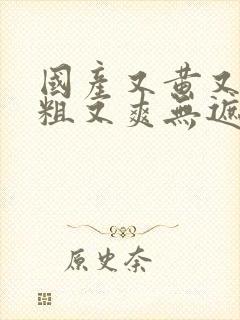 國產又黃又
粗又爽無遮
原史奈